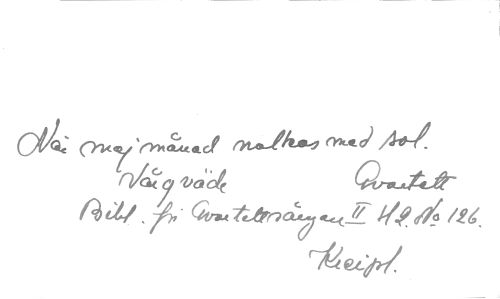 När maj månad nalkas med sol.
Vårqväde Qvartett
Bibl. för Qvartettsången II H2. No 126.
Kreipl.